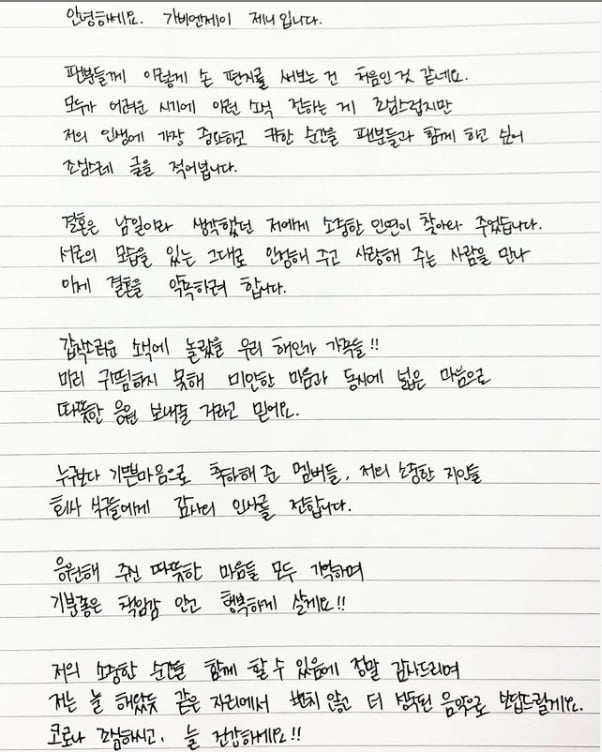 안녕하세요. 가비엔제이 제니입니다.
팬분들께 이렇게 손 편지를 써보는 건 처음인것 같네요.
모두가 어려운 시기에 이런 소식 전하는 게 조심스럽지만
저의 인생에 가장 중요하고 귀한 순간을 팬분들과 함께 하고 싶어
조심스레 글을 적어봅니다.
결혼은 남일이라 생각했던 저에게 소중한 인연이 찾아와 주었습니다.
서로의 모습을 있는 그대로 인정해 주고 사랑해 주는 사람을 만나
이제 결혼을 약속하려 합니다.
갑작스러운 소식에 놀랐을 우리 해인가 가족들!!
미리 귀띔하지 못해 미안한 마음과 동시에 넓은 마음으로
따뜻한 응원 보내줄 거라고 믿어요.
누구보다 기쁜마음으로 축하해 준 멤버들, 저의 소중한 지인들
회사 식구들에게 감사의 인사를 전합니다.
응원해 주신 따뜻한 마음들 모두 기억하며
기분좋은 책임감 안고 행복하게 살게요!!
저의 소중한 순간들 함께 할 수 있음에 정말 감사드리며
저는 늘 해왔듯 같은 자리에서 변치 않고 더 성숙된 음악으로 보답드릴게요.
코로나 조심하시고, 늘 건강하세요!!